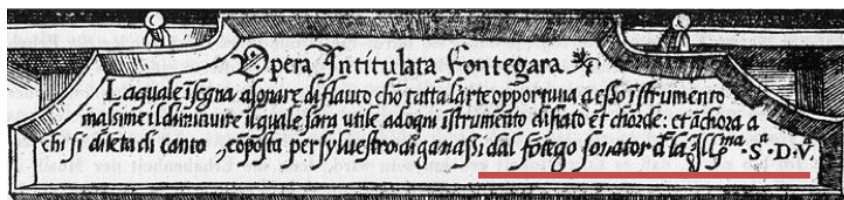 Opera Intitulata Fontegara
Laquale ĩsegna a sonare di flauto chõ tutta l'arte opportuna a esso ĩstrumento
massime il diminuire il quale sara utile ad ogni ĩstrumento di fiato et chorde: et ãchora a
chi si dileta di canto, cõposta per sylvestro di ganassi dal fõtego sonator d la Ill.ma Sa D.V.